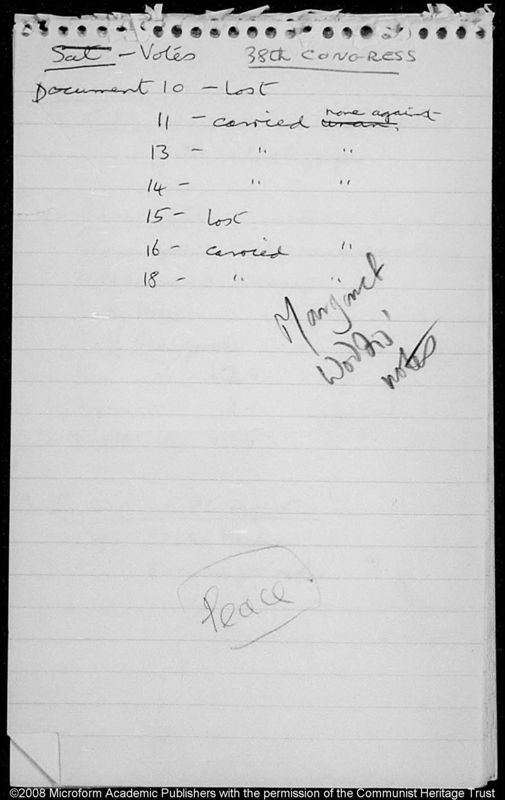 Sat - Votes 38th CONGRESS
Document 10 - Lost
11 - carried none against unan.
13 - " "
14 - " "
15 - Lost
16 - carried "
18 - " "
Margaret
notes
Peace
©2008 Microform Academic Publishers with the permission of the Communist Heritage Trust